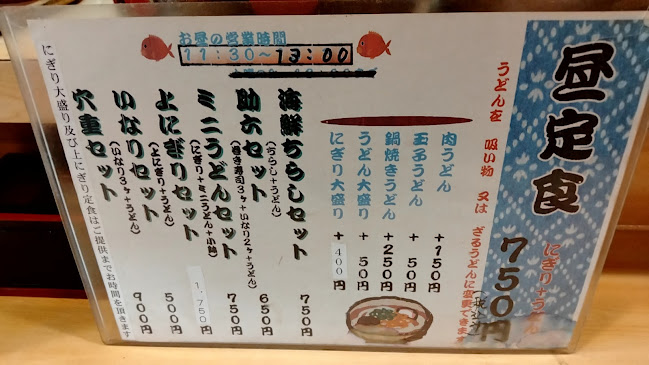 昼定食
にぎり+うどん
750円
うどんを 吸い物 又は ざるうどんに変更できます
肉うどん +150円
玉子うどん +50円
鍋焼きうどん +250円
うどん大盛り +50円
にぎり大盛り +400円
お昼の営業時間
11:30~13:00
海鮮ちらしセット(ちらし+うどん) 750円
助六セット(巻き寿司3ヶ+いなり2ヶ+うどん) 650円
ミニうどんセット(にぎり+ミニうどん+小鉢) 750円
上にぎりセット(上にぎり+うどん) 1,750円
いなりセット(いなり3ヶ+うどん) 500円
穴重セット 900円
にぎり大盛り及び上にぎり定食はご提供までお時間を頂きます